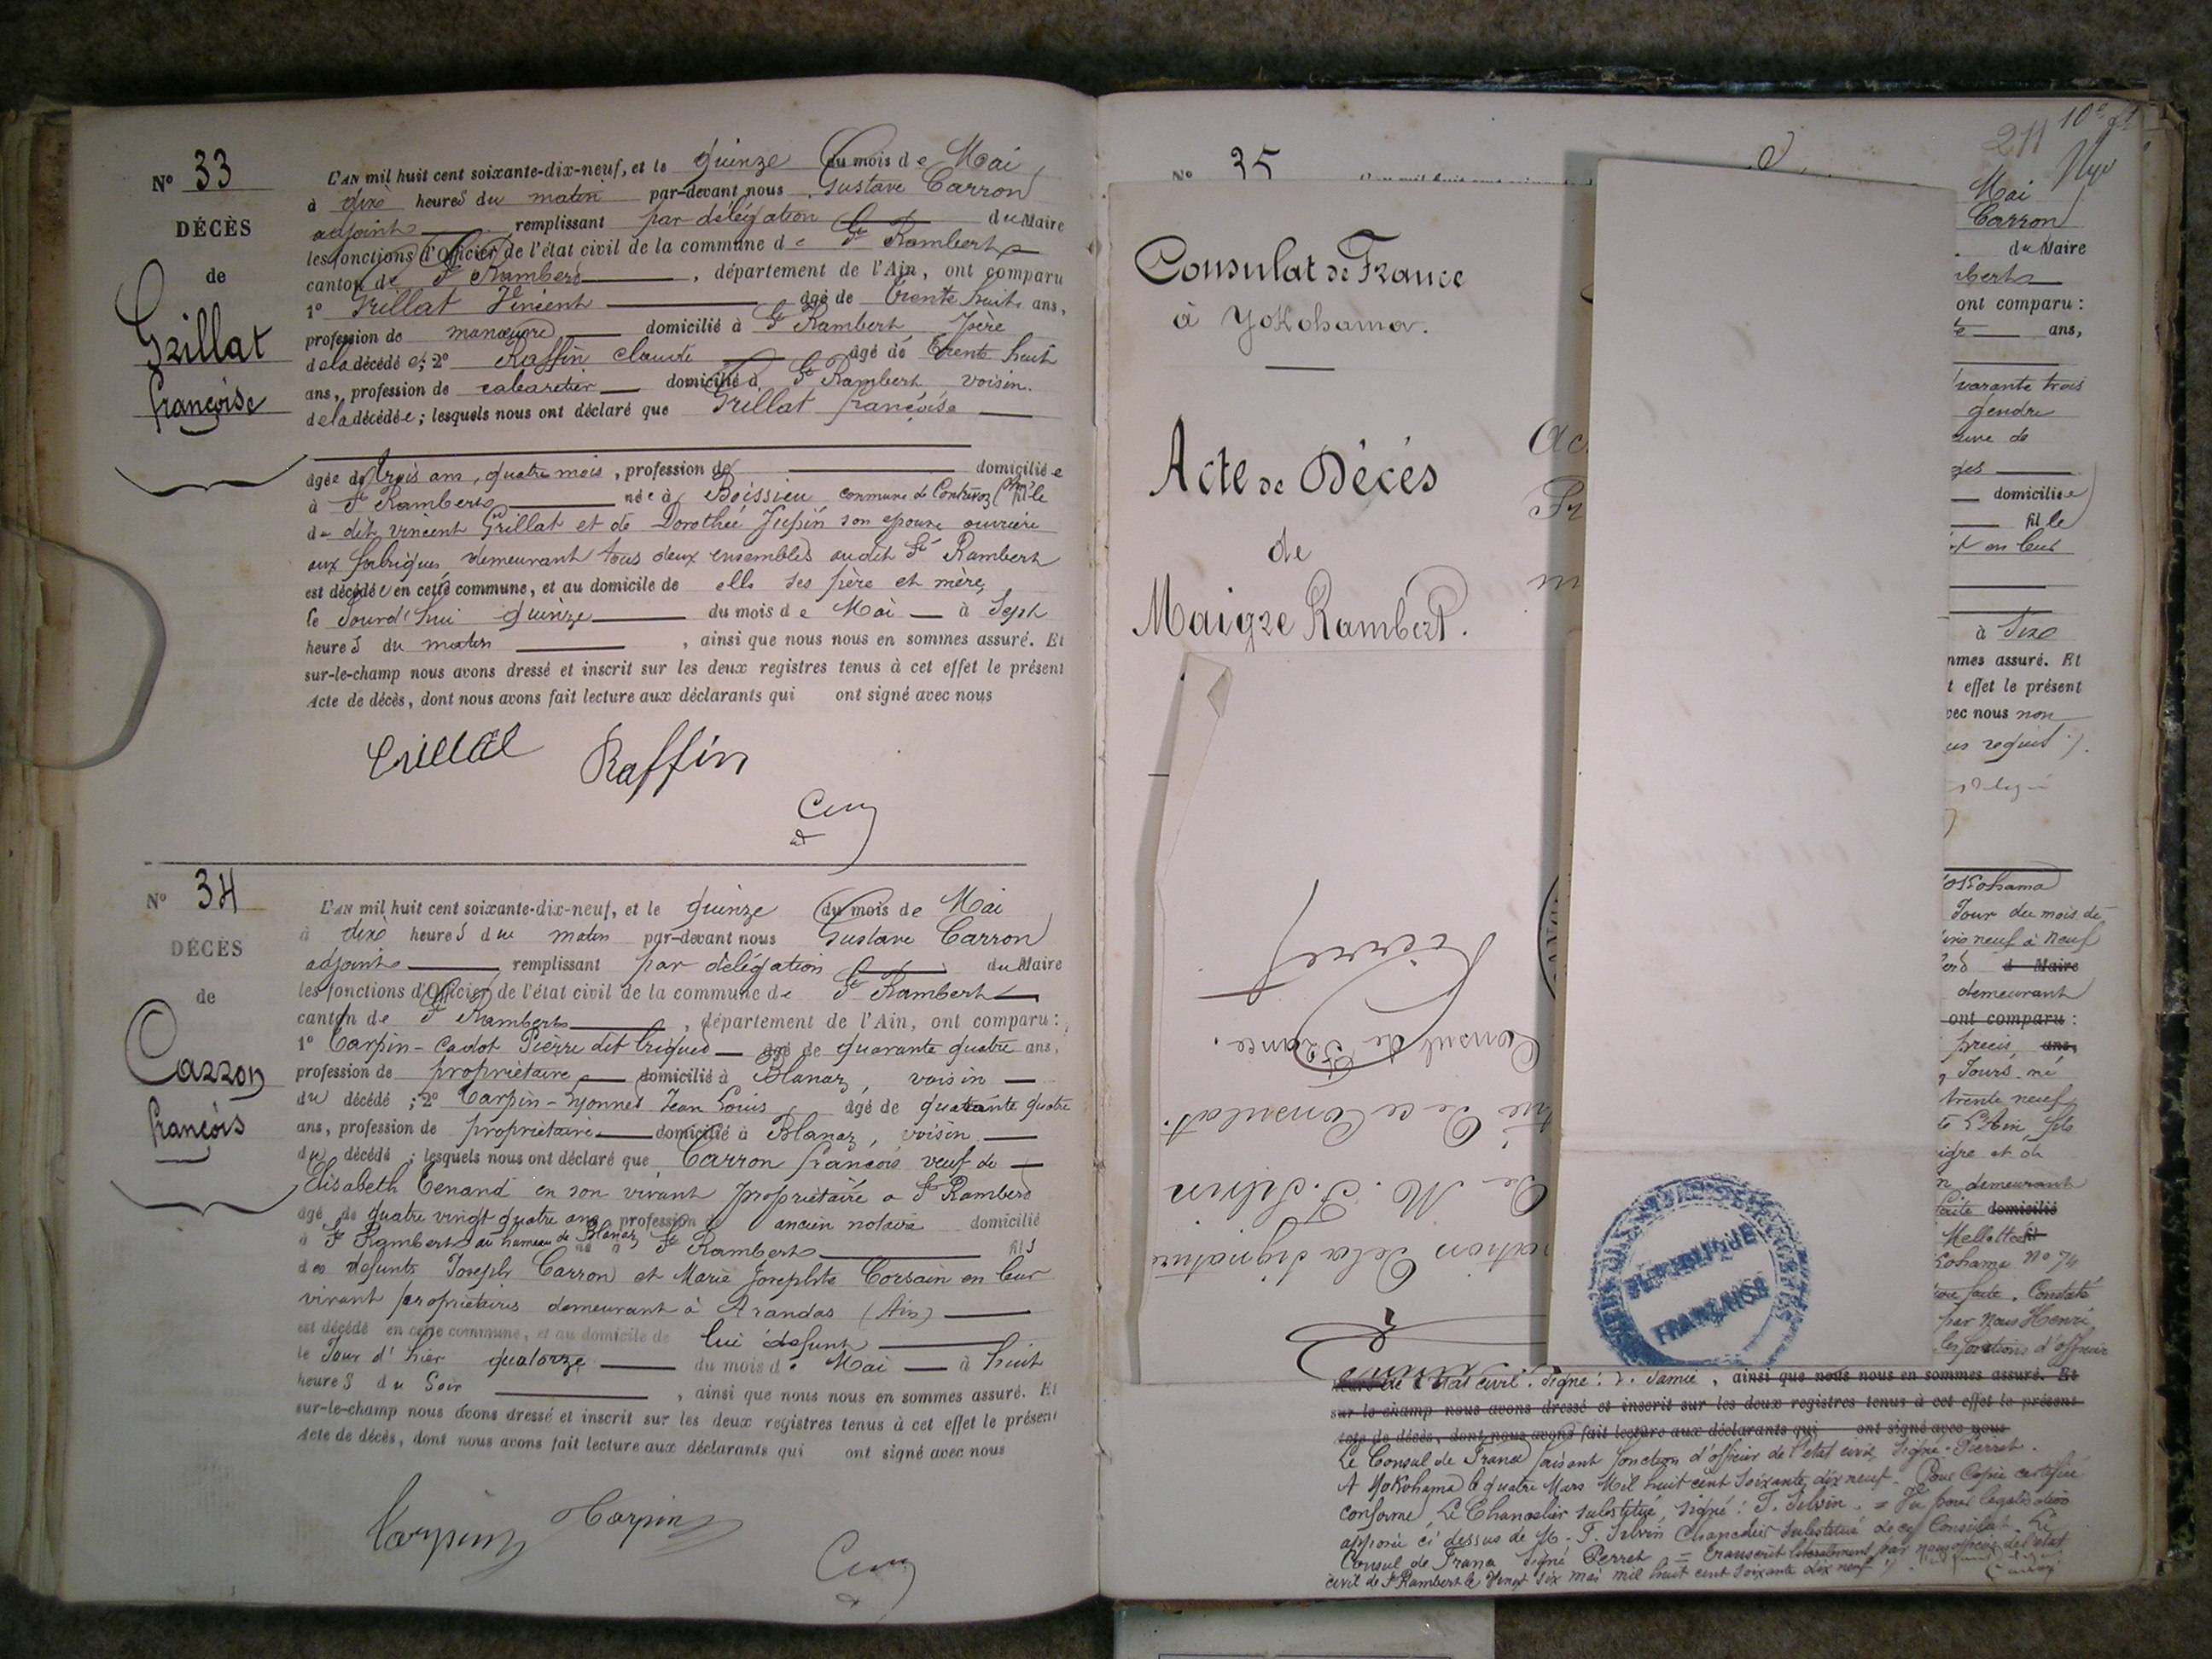 N° 33
DÉCÈS
de
Grillat
françoise
L'AN mil huit cent soixante-dix-neuf, et le quinze du mois de Mai
à dix heures du matin par-devant nous Gustave Carron
adjoint remplissant par délégation du Maire
les fonctions d'Officier de l'état civil de la commune de St Rambert
canton de St Rambert, département de l'Ain, ont comparu
1° Grillat Vincent âgé de trente huit ans,
profession de manœuvre domicilié à St Rambert père
de la décédée; 2° Raffin claude âgé de trente huit
ans, profession de cabaretier domicilié à St Rambert voisin
de la décédée; lesquels nous ont déclaré que Grillat françoise
âgée de trois ans, quatre mois, profession de domiciliée
à St Rambert née à Boissieu commune de Contrevoz fille
de dit vincent Grillat et de Dorothée Jupin son epouse ouvrière
aux fabriques demeurant tous deux ensembles audit St Rambert
est décédée en cette commune, et au domicile de elle ses père et mère
le Jourd'hui quinze du mois de Mai à Sept
heures du matin, ainsi que nous nous en sommes assuré. Et
sur-le-champ nous avons dressé et inscrit sur les deux registres tenus à cet effet le présent
Acte de décès, dont nous avons fait lecture aux déclarants qui ont signé avec nous
Grillat Raffin
N° 34
DÉCÈS
de
Carron
françois
L'AN mil huit cent soixante-dix-neuf, et le quinze du mois de Mai
à dix heures du matin par-devant nous Gustave Carron
adjoint remplissant par délégation du Maire
les fonctions d'Officier de l'état civil de la commune de St Rambert
canton de St Rambert, département de l'Ain, ont comparu :
1° Carpin-Cadot Pierre dit âgé de quarante quatre ans,
profession de propriétaire domicilié à Blanaz, voisin
du décédé ; 2° Carpin- Jean Louis âgé de quarante quatre
ans, profession de propriétaire domicilié à Blanaz, voisin
du décédé ; lesquels nous ont déclaré que Carron françois veuf de
Elisabeth Tenand en son vivant propriétaire a St Rambert
âgé de quatre vingt quatre ans profession de ancien notaire domicilié
à St Rambert au hameau de Blanaz né à St Rambert fils
des defunts Joseph Carron et Marie Josephte Corsain en leur
vivant propriétaires demeurant à Arandas (Ain)
est décédé en cette commune, et au domicile de lui défunt
le Jour d'hier quatorze du mois de Mai à huit
heures du Soir, ainsi que nous nous en sommes assuré. Et
sur-le-champ nous avons dressé et inscrit sur les deux registres tenus à cet effet le présent
Acte de décès, dont nous avons fait lecture aux déclarants qui ont signé avec nous
Carpin Carpin
211
N° 35
Consulat de France
à Yokohama.
Acte de Décès
de
Maigre Rambert.
Ac
Consul de France.
de ce Consulat.
De M. F. Silvin
de la signature
RÉPUBLIQUE
FRANÇAISE
Mai
Carron
du Maire
ont comparu :
ans,
quarante trois
gendre
domiciliée
fille
en leur
à Six
mmes assuré. Et
t effet le présent
vec nous non
requit
Yokohama
Jour du mois de
neuf à neuf
d Maire
demeurant
ont comparu :
precis ans,
Jours né
trente neuf
L'Ain fils
igre et de
demeurant
domicilié
Yokohama N° 74
faite. Constaté
par Nous Henri
les fonctions d'officier
de l'état civil. Signé : , ainsi que nous nous en sommes assuré. Et
sur le champ nous avons dressé et inscrit sur les deux registres tenus à cet effet le présent
acte de décès, dont nous avons fait lecture aux déclarants qui ont signé avec nous
Le Consul de France faisant fonction d'officier de l'état civil, Signé : Pierret.
A Yokohama le quatre Mars Mil huit cent soixante dix neuf. Pour Copie certifiée
conforme, Le Chancelier substitué, signé : F. Silvin. = Vu pour legalisation
apposée ci dessus de M. F. Silvin Chancelier substitué de ce Consulat. Le
Consul de France signé Perret = transcrit literalement par nous officier de l'état
civil de St Rambert le Vingt six mai mil huit cent soixante dix neuf